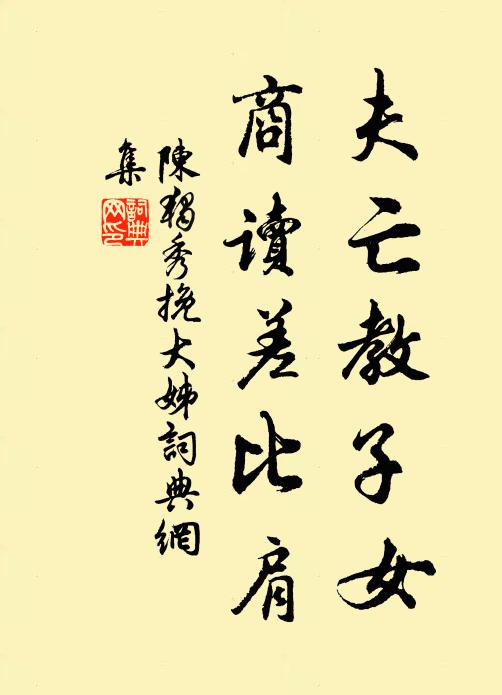 夫亡教子女
商读差比肩
陳獨秀挽大姊詞典網
集
詞典
网印